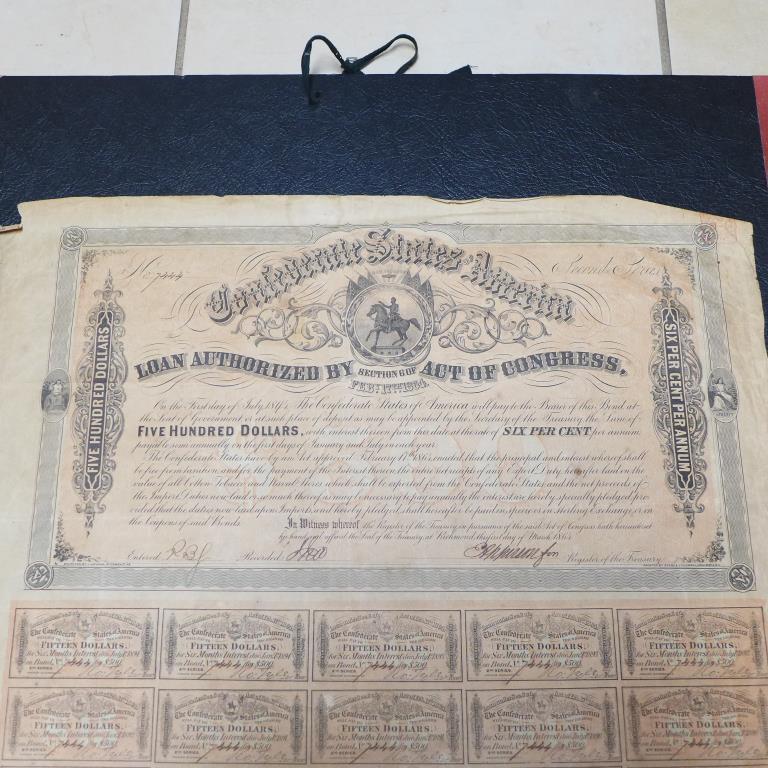 No. 7444
Second Series
Confederate States of America
LOAN AUTHORIZED BY SECTION 6 OF ACT OF CONGRESS,
FEBY. 17TH 1864.
FIVE HUNDRED DOLLARS
SIX PER CENT PER ANNUM.
On the First day of July 1894. The Confederate States of America will pay to the Bearer of this Bond at
the Seat of Government or at such place of deposit as may be appointed by the Secretary of the Treasury the Sum of
FIVE HUNDRED DOLLARS, with interest thereon from this date at the rate of SIX PER CENT per annum
payable semi annually on the first days of January and July in each year.
The Confederate States have by an Act approved February 17th 1864 enacted that the principal and interest whereof shall
be free from taxation, and for the payment of the Interest thereon the entire net receipts of any Export Duty hereafter laid on the
value of all Cotton Tobacco and Naval Stores which shall be exported from the Confederate States and the net proceeds of
the Import Duties now laid or so much thereof as may be necessary to pay annually the interest are hereby specially pledged pro-
vided that the duties now laid upon Imports and hereby pledged shall hereafter be paid in specie or in Sterling Exchange or in
the Coupons of said Bonds.
In Witness whereof the Register of the Treasury in pursuance of the said Act of Congress hath hereunto set
his hand and affixed the Seal of the Treasury at Richmond this first day of March 1864
Entered Recorded Register of the Treasury
The Confederate States of America
FIFTEEN DOLLARS,
for Six Months Interest due
on Bond, No. 7444 for $500
The Confederate States of America
FIFTEEN DOLLARS,
for Six Months Interest due
on Bond, No. 7444 for $500
The Confederate States of America
FIFTEEN DOLLARS,
for Six Months Interest due
on Bond, No. 7444 for $500
The Confederate States of America
FIFTEEN DOLLARS,
for Six Months Interest due
on Bond, No. 7444 for $500
The Confederate States of America
FIFTEEN DOLLARS,
for Six Months Interest due
on Bond, No. 7444 for $500
The Confederate States of America
FIFTEEN DOLLARS,
for Six Months Interest due
on Bond, No. 7444 for $500
The Confederate States of America
FIFTEEN DOLLARS,
for Six Months Interest due
on Bond, No. 7444 for $500
The Confederate States of America
FIFTEEN DOLLARS,
for Six Months Interest due
on Bond, No. 7444 for $500
The Confederate States of America
FIFTEEN DOLLARS,
for Six Months Interest due
on Bond, No. 7444 for $500
The Confederate States of America
FIFTEEN DOLLARS,
for Six Months Interest due
on Bond, No. 7444 for $500